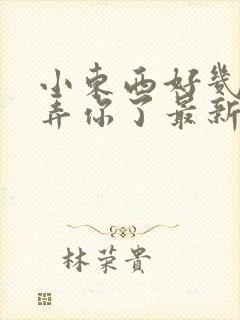 小東西好幾
弄你了最新
林荣貴